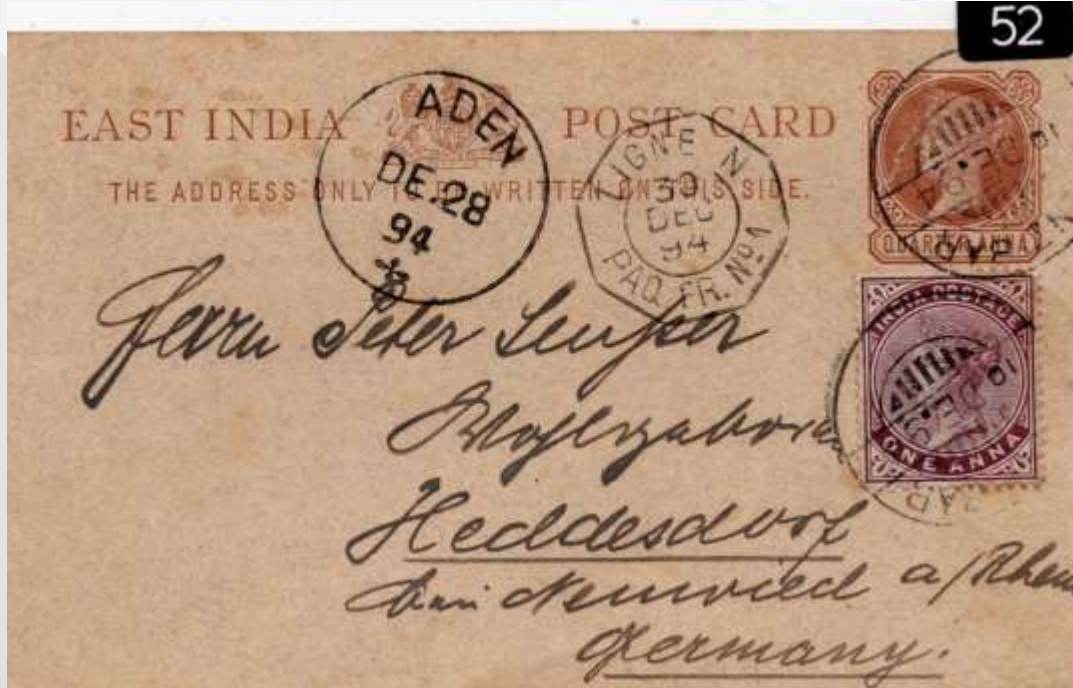 52
EAST INDIA POST CARD
THE ADDRESS ONLY TO BE WRITTEN ON THIS SIDE.
ADEN
DE.28
94
LIGNE N
30
DEC
94
PAQ. FR. Nº 1
QUARTER ANNA
INDIA POSTAGE
ONE ANNA
Herrn Peter
Heddesdorf
bei Neuwied a/Rhein
Germany.